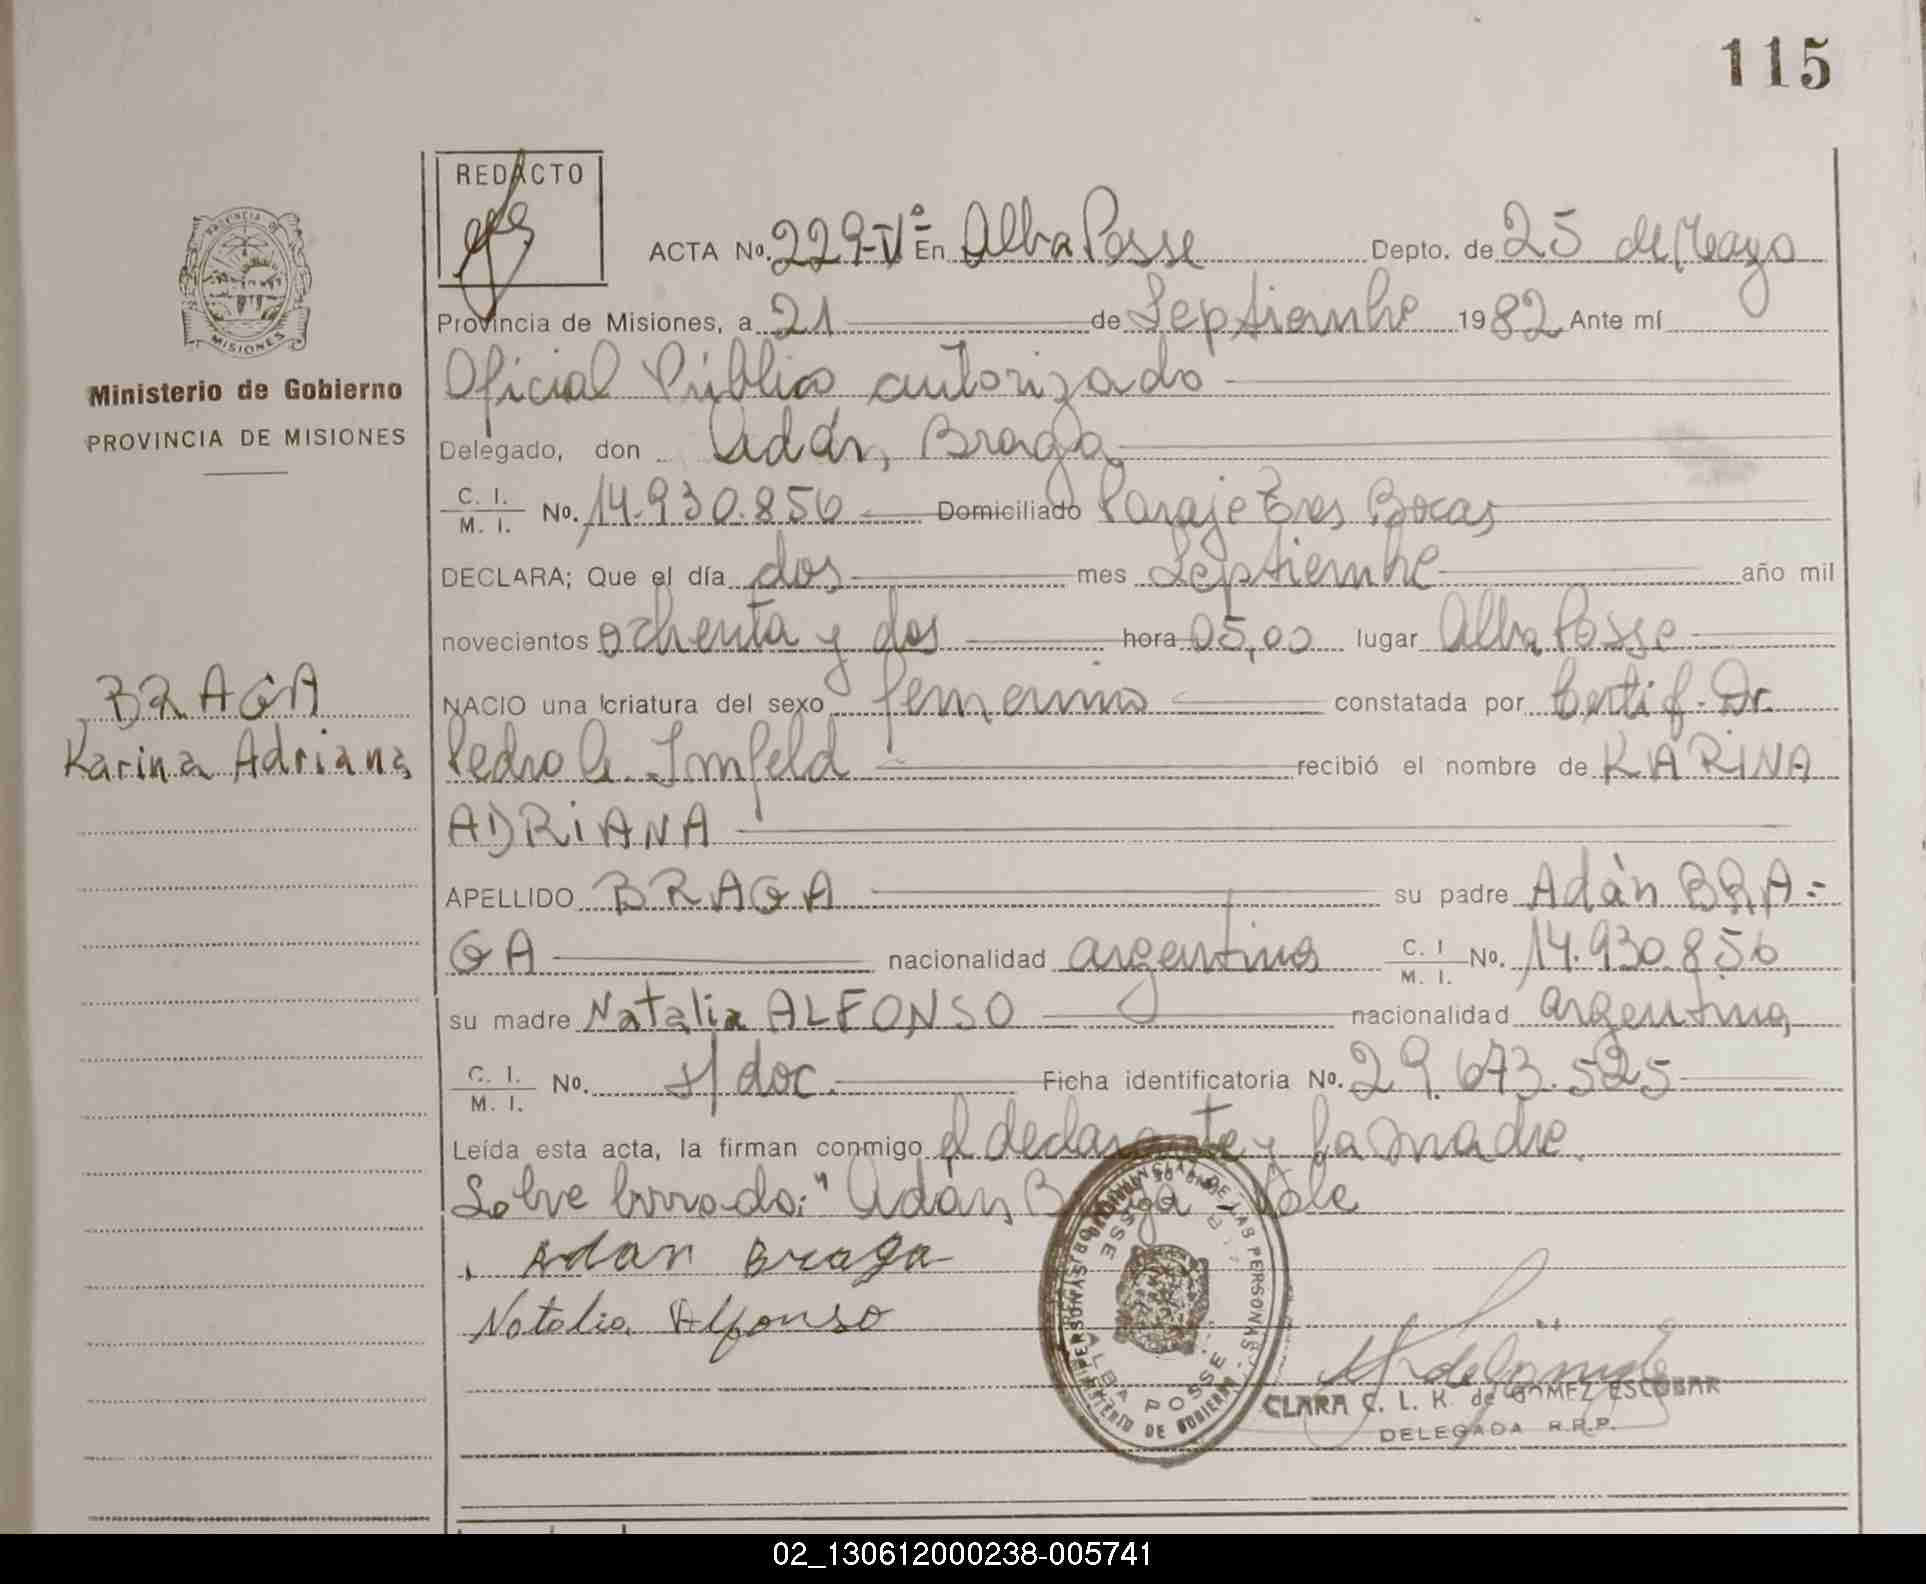 115
REDACTO
ACTA No. 229-Vº En Alba Posse Depto. de 25 de Mayo
Provincia de Misiones, a 21 de Septiembre 1982 Ante mí
Oficial Público autorizado
Delegado, don Adán, Braga
C. I. / M. I. No. 14.930.856 Domiciliado Paraje Tres Bocas
DECLARA; Que el día dos mes Septiembre año mil
novecientos ochenta y dos hora 05,00 lugar Alba Posse
NACIO una criatura del sexo femenino constatada por Certif. Dr.
Pedro G. Imfeld recibió el nombre de KARINA
ADRIANA
APELLIDO BRAGA su padre Adán BRA=
GA nacionalidad argentino C. I. / M. I. No. 14.930.856
su madre Natalia ALFONSO nacionalidad argentina,
C. I. / M. I. No. s/doc. Ficha identificatoria No. 29.673.525
Leída esta acta, la firman conmigo el declarante y la madre.
Sobre borrado: "Adán, Braga Vale
Adan Braga
Natalia Alfonso
CLARA C. L. K. de GOMEZ ESCOBAR
DELEGADA R.R.P.
DE LAS PERSONAS
ALBA POSSE
MINISTERIO DE GOBIERNO
PROVINCIA DE
MISIONES
Ministerio de Gobierno
PROVINCIA DE MISIONES
BRAGA
Karina Adriana
02_130612000238-005741